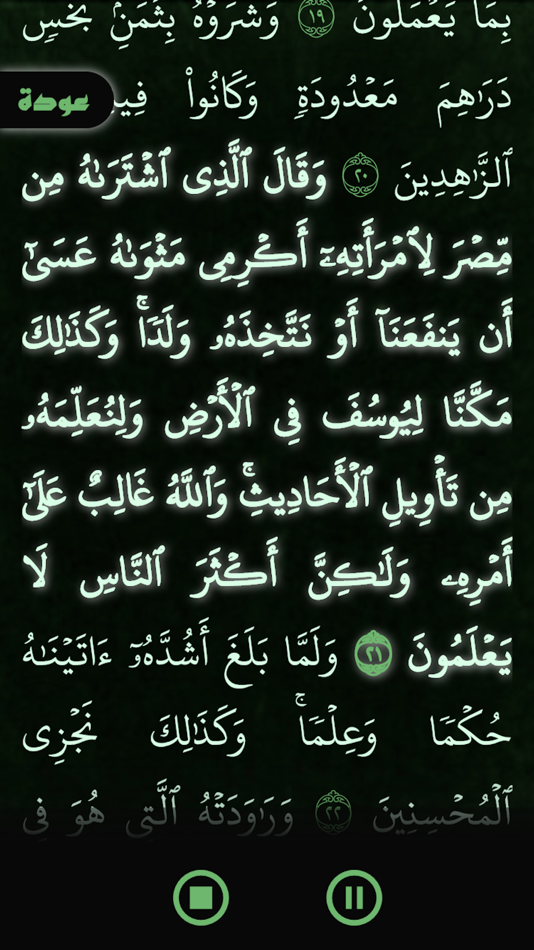 بِمَا يَعۡمَلُونَ ١٩ وَشَرَوۡهُ بِثَمَنِۭ بَخۡسٖ
دَرَٰهِمَ مَعۡدُودَةٖ وَكَانُواْ
عودة
ٱلزَّٰهِدِينَ ٢٠ وَقَالَ ٱلَّذِي ٱشۡتَرَىٰهُ مِن
مِّصۡرَ لِٱمۡرَأَتِهِۦٓ أَكۡرِمِي مَثۡوَىٰهُ عَسَىٰٓ
أَن يَنفَعَنَآ أَوۡ نَتَّخِذَهُۥ وَلَدٗاۚ وَكَذَٰلِكَ
مَكَّنَّا لِيُوسُفَ فِي ٱلۡأَرۡضِ وَلِنُعَلِّمَهُۥ
مِن تَأۡوِيلِ ٱلۡأَحَادِيثِۚ وَٱللَّهُ غَالِبٌ عَلَىٰٓ
أَمۡرِهِۦ وَلَٰكِنَّ أَكۡثَرَ ٱلنَّاسِ لَا
يَعۡلَمُونَ ٢١ وَلَمَّا بَلَغَ أَشُدَّهُۥٓ ءَاتَيۡنَٰهُ
حُكۡمٗا وَعِلۡمٗاۚ وَكَذَٰلِكَ نَجۡزِي
ٱلۡمُحۡسِنِينَ ٢٢ وَرَٰوَدَتۡهُ ٱلَّتِي هُوَ فِي